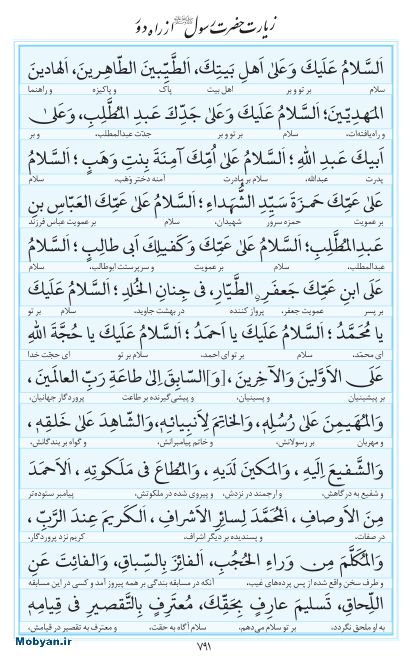 زیارت حضرت رسول ﷺ از راه دور
اَلسَّلامُ عَلَيكَ وَعَلىٰ اَهلِ بَيتِكَ، الطَّيِّبينَ الطّاهِرينَ، الهادينَ
سلام بر تو و بر اهل بیت پاک و پاکیزه و راهنما
المَهدِيّينَ؛ اَلسَّلامُ عَلَيكَ وَعَلىٰ جَدِّكَ عَبدِ المُطَّلِبِ، وَعَلىٰ
و راه‌یافته‌ات، سلام بر تو و بر جدّت عبدالمطلب، و بر
اَبيكَ عَبدِ اللهِ؛ اَلسَّلامُ عَلىٰ اُمِّكَ آمِنَةَ بِنتِ وَهَبٍ؛ اَلسَّلامُ
پدرت عبدالله، سلام بر مادرت آمنه دختر وَهَب، سلام
عَلىٰ عَمِّكَ حَمزَةَ سَيِّدِ الشُّهَداءِ؛ اَلسَّلامُ عَلىٰ عَمِّكَ العَبّاسِ بنِ
بر عمویت حمزه سرور شهیدان، سلام بر عمویت عباس فرزند
عَبدِالمُطَّلِبِ؛ اَلسَّلامُ عَلىٰ عَمِّكَ وَكَفيلِكَ اَبى طالِبٍ؛ اَلسَّلامُ
عبدالمطلب، سلام بر عمویت و سرپرستت ابوطالب، سلام
عَلَى ابنِ عَمِّكَ جَعفَرٍ الطَّيّارِ، فى جِنانِ الخُلدِ؛ اَلسَّلامُ عَلَيكَ
بر پسر عمویت جعفر، پرواز کننده در بهشت جاوید، سلام بر تو
يا مُحَمَّدُ؛ اَلسَّلامُ عَلَيكَ يا اَحمَدُ؛ اَلسَّلامُ عَلَيكَ يا حُجَّةَ اللهِ
ای محمّد، سلام بر تو ای احمد، سلام بر تو ای حجّت خدا
عَلَى الاَوَّلينَ وَالآخِرينَ، [وَ]السّابِقَ اِلىٰ طاعَةِ رَبِّ العالَمينَ،
بر پیشینیان و پسینیان، و پیشی‌گیرنده بر طاعت پروردگار جهانیان،
وَالمُهَيمِنَ عَلىٰ رُسُلِهِ، وَالخاتِمَ لِاَنبِيائِهِ، وَالشّاهِدَ عَلىٰ خَلقِهِ،
و مهربان بر رسولانش، و خاتم پیامبرانش، و گواه بر بندگانش،
وَالشَّفيعَ اِلَيهِ، وَالمَكينَ لَدَيهِ، وَالمُطاعَ فى مَلَكوتِهِ، الاَحمَدَ
و شفیع به درگاهش، و ارجمند در نزدش، و پیروی شده در ملکوتش، پیامبر ستوده‌تر
مِنَ الاَوصافِ، المُحَمَّدَ لِسائِرِ الاَشرافِ، الكَريمَ عِندَ الرَّبِّ،
در صفات، و پسندیده بر دیگر اشراف، کریم نزد پروردگار،
وَالمُكَلَّمَ مِن وَراءِ الحُجُبِ، الفائِزَ بِالسِّباقِ، وَالفائِتَ عَنِ
و طرف سخن واقع شده از پس پرده‌های غیب، آنکه در مسابقه بندگی بر همه پیروز آمد و کسی در این مسابقه
اللِّحاقِ، تَسليمَ عارِفٍ بِحَقِّكَ، مُعتَرِفٍ بِالتَّقصيرِ فى قِيامِهِ
به او ملحق نگردد، بر تو سلام می‌دهم، سلام آگاه به حقّت، و معترف به تقصیر در قیامش،
Mobyan.ir
۷۹۱